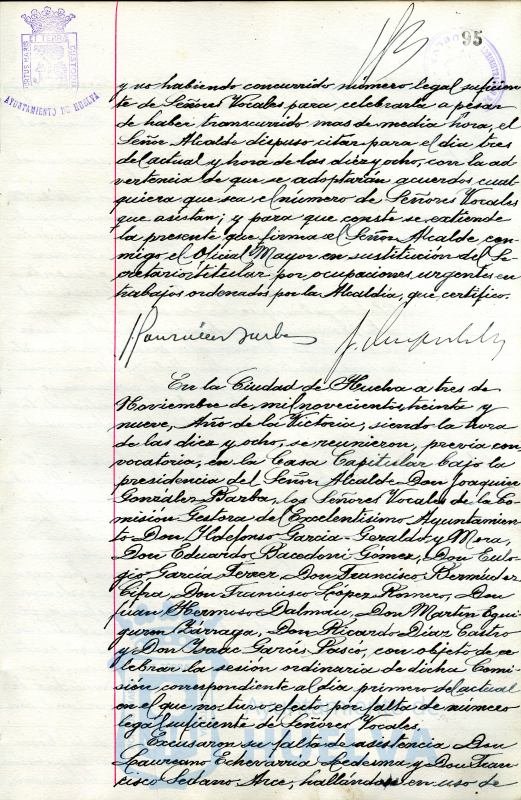 95
PORTUS MARIS ET TERRAE CUSTODIA
AYUNTAMIENTO DE HUELVA
y no habiendo concurrido número legal suficien
te de Señores Vocales para celebrarla a pesar
de haber transcurrido mas de media hora, el
Señor Alcalde dispuso citar para el dia tres
del actual y hora de las diez y ocho, con la ad
vertencia de que se adoptarán acuerdos cual
quiera que sea el número de Señores Vocales
que asistan; y para que conste se extiende
la presente que firma el Señor Alcalde con-
migo el Oficial Mayor en sustitución del Se-
cretario titular por ocupaciones urgentes en
trabajos ordenados por la Alcaldía, que certifico.
En la Ciudad de Huelva a tres de
Noviembre de mil novecientos treinta y
nueve, Año de la Victoria, siendo la hora
de las diez y ocho, se reunieron, previa con
vocatoria, en la Casa Capitular bajo la
presidencia del Señor Alcalde Don Joaquin
González Barba, los Señores Vocales de la Co-
misión Gestora del Excelentisimo Ayuntamien
to Don Ildefonso Garcia-Geraldo y Mora,
Don Eduardo Bacedoni Gómez, Don Eulo
gio García Ferrer, Don Francisco Bermúdez
Cifra, Don Francisco López Romero, Don
Juan Hermoso Dalmau, Don Martin Egui
guren Zárraga, Don Ricardo Díaz Castro
y Don Isaac Garcés Pasco, con objeto de ce
lebrar la sesión ordinaria de dicha Comi
sión correspondiente al dia primero del actual
en el que no tuvo efecto por falta de número
legal suficiente de Señores Vocales.
Excusaron su falta de asistencia Don
Laureano Echevarria Ledesma y Don Fran
cisco Sedano Arce, hallándose en uso de
HUELVA